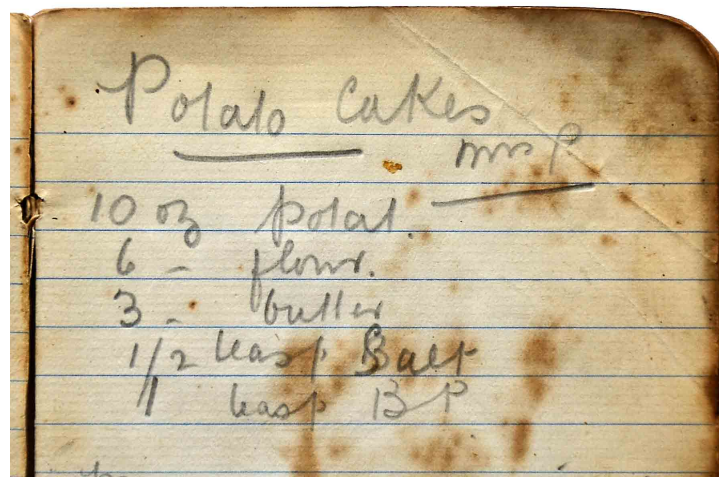 Potato Cakes
Mrs P
10 oz Potat.
6 - flour.
3 - butter
1/2 teasp Salt
1 teasp BP